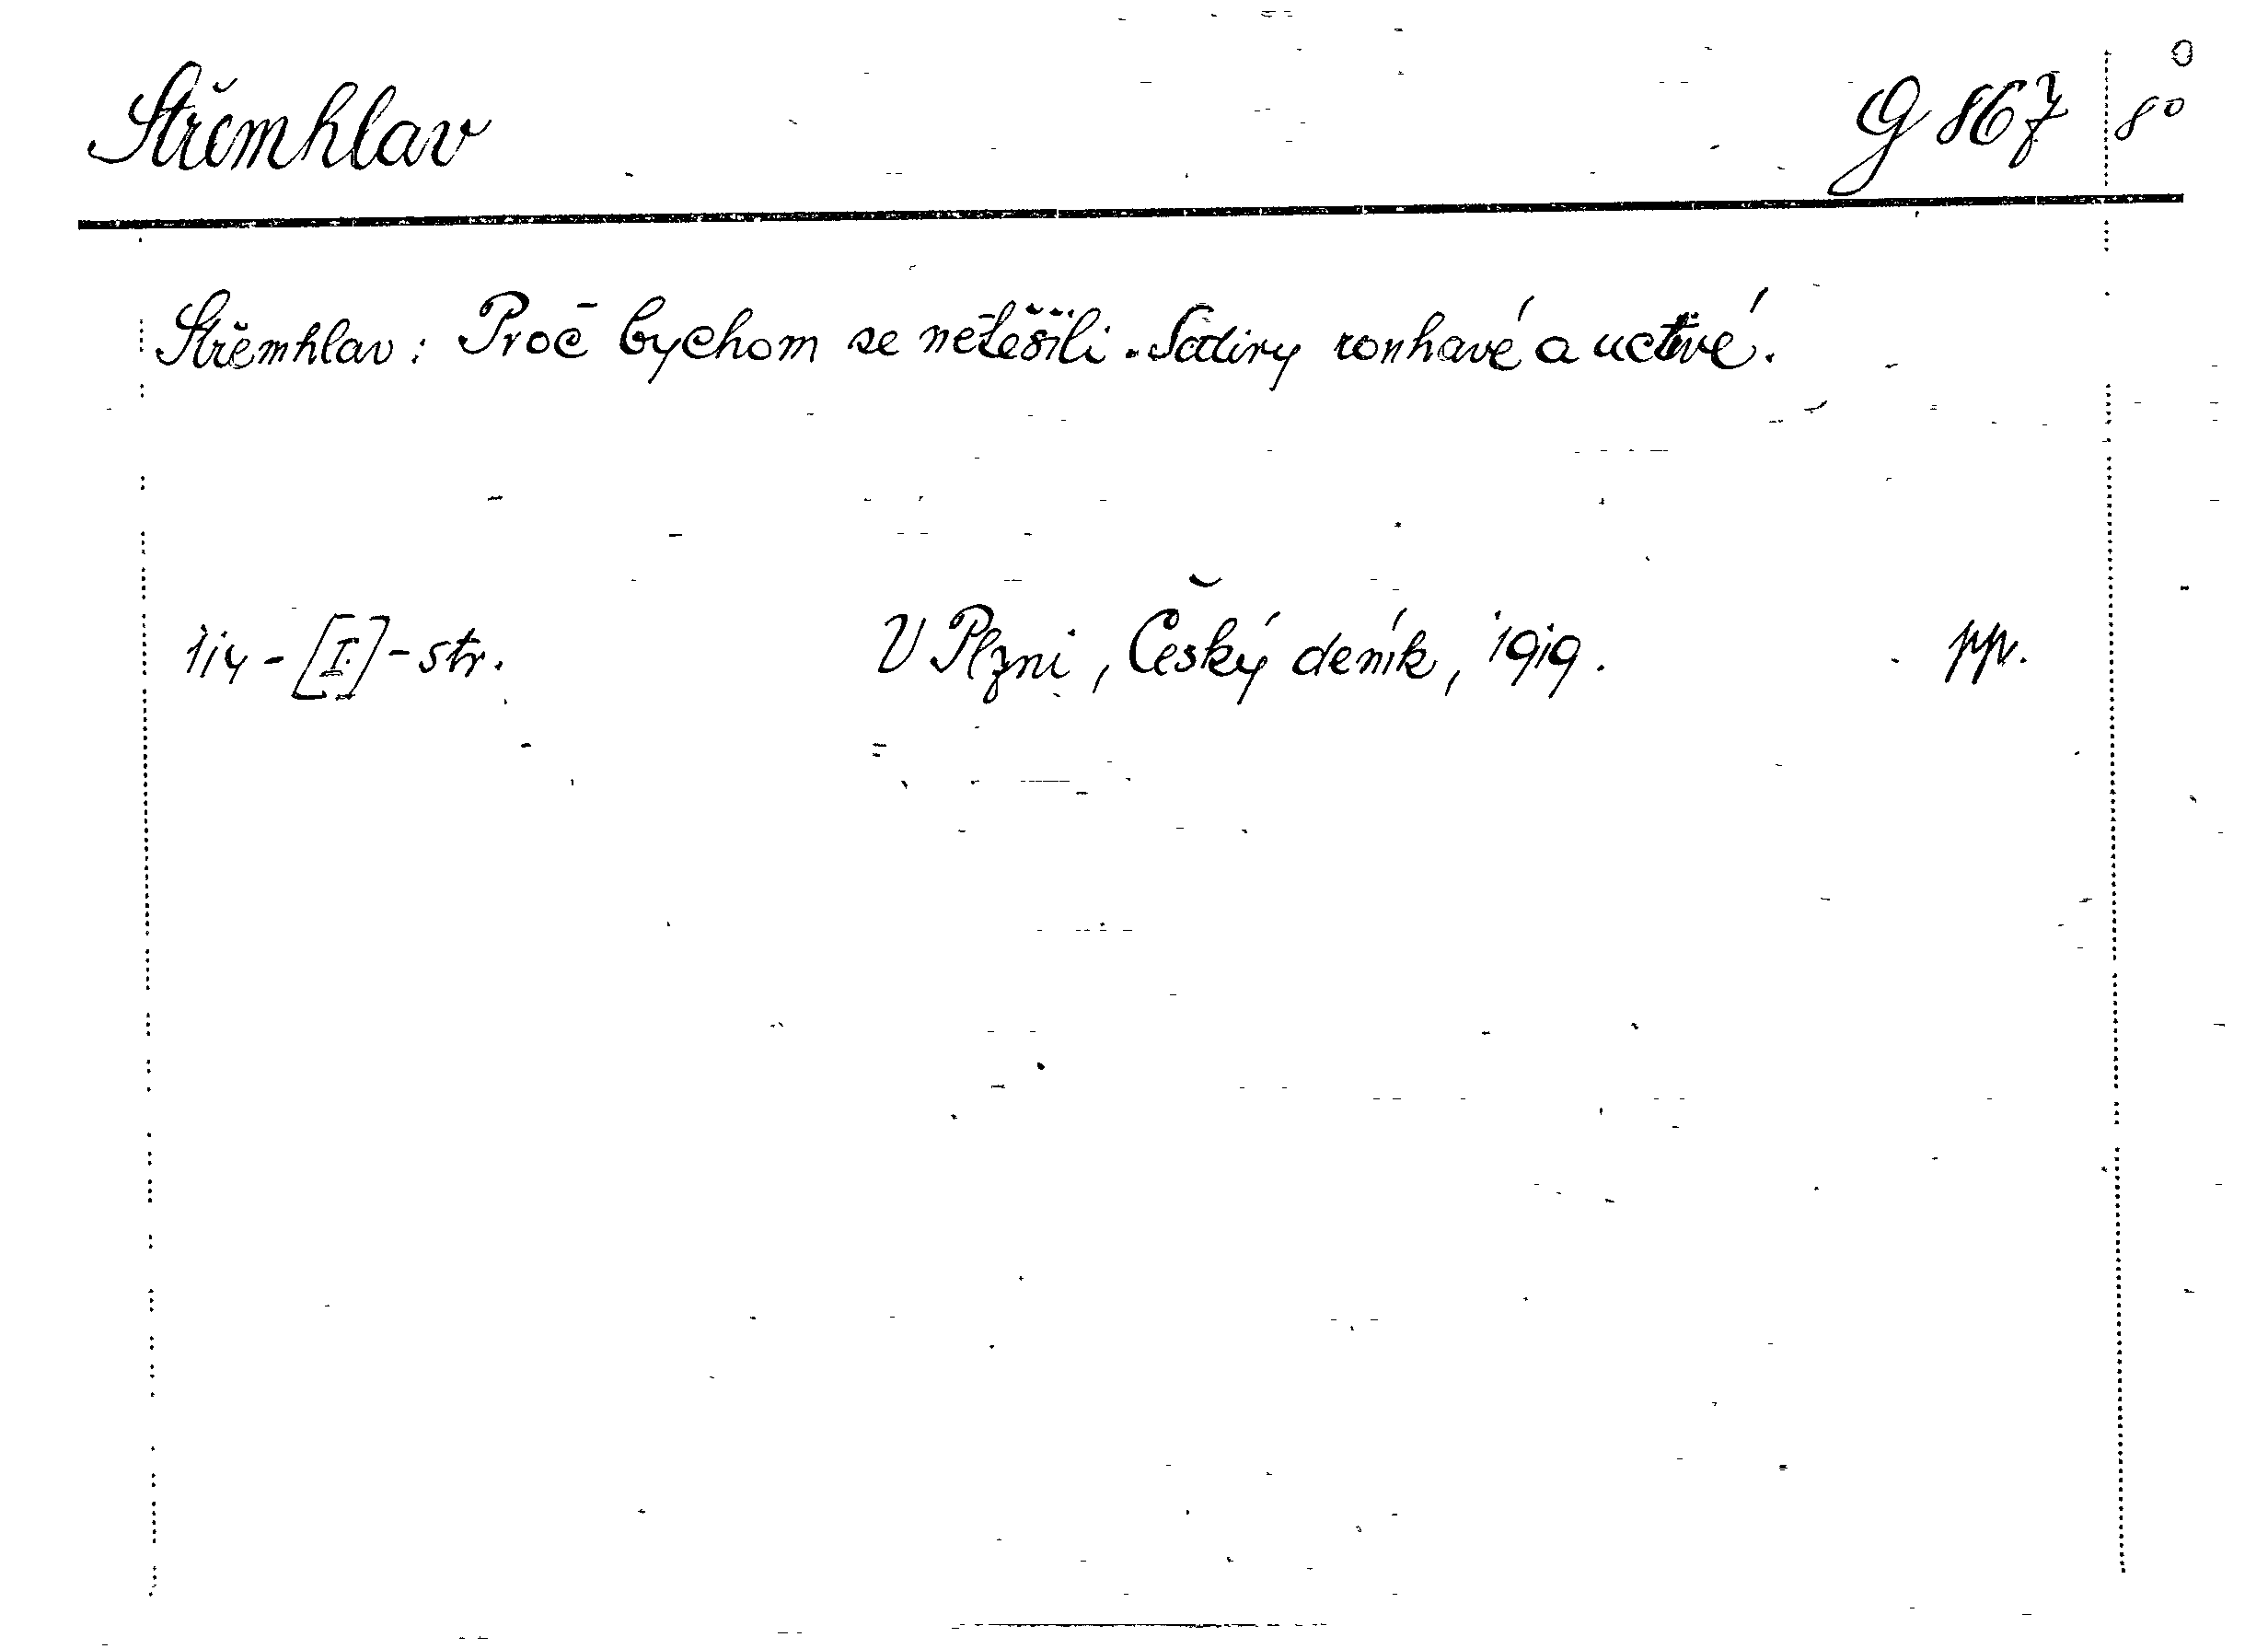 Střemhlav G 867 8°
Střemhlav: Proč bychom se netěšili. Satiry rouhavé a uctivé.
114-[I]-str. V Plzni, Český deník, 1919. pp.